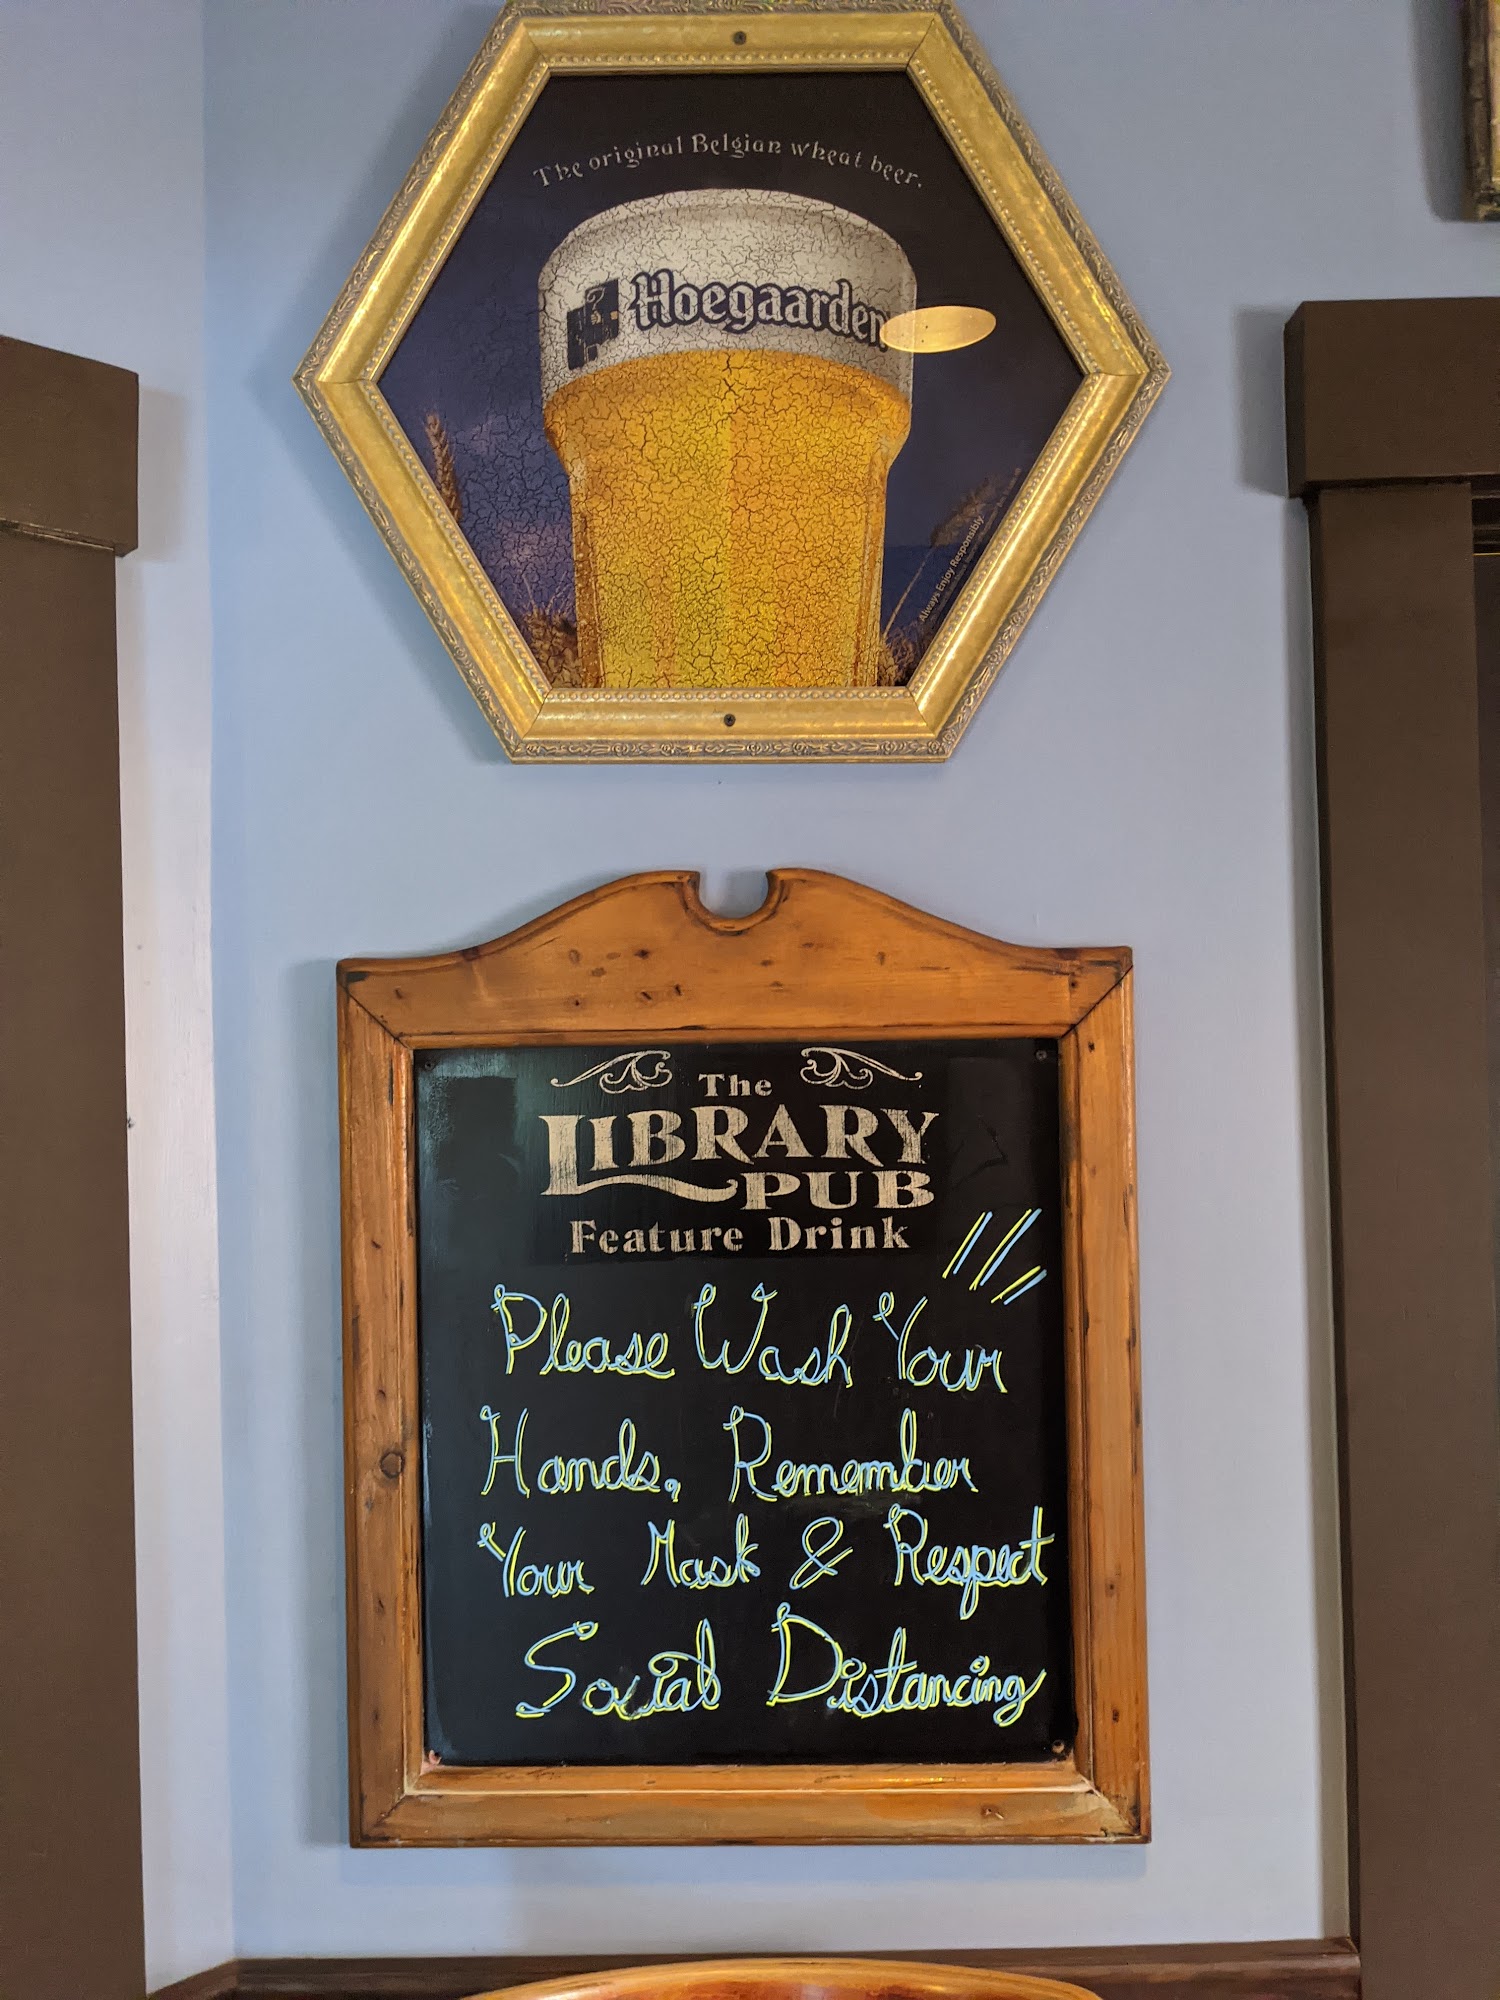 The original Belgian wheat beer.
Hoegaarden
Always Enjoy Responsibly
The
LIBRARY
PUB
Feature Drink
Please Wash Your
Hands, Remember
Your Mask & Respect
Social Distancing